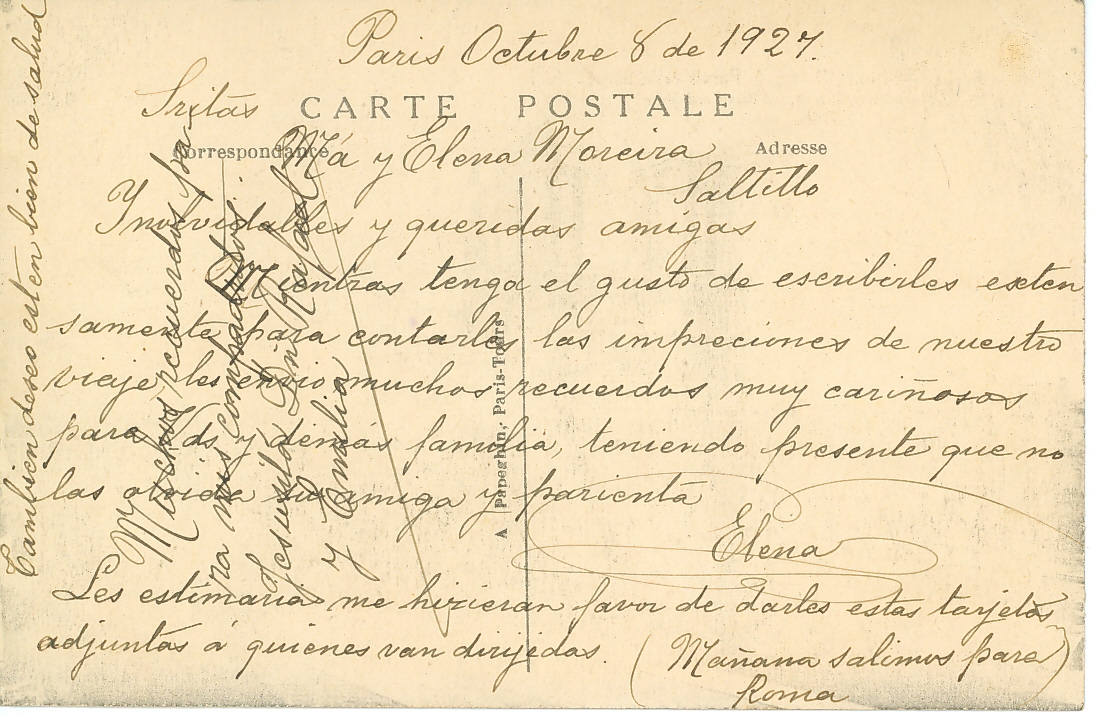 Paris Octubre 8 de 1927.
Sritas
CARTE POSTALE
Correspondance
Adresse
Má y Elena Moreira
Saltillo
Inolvidables y queridas amigas
Mientras tenga el gusto de escribirles exten
samente para contarles las impreciones de nuestro
vieje les envio muchos recuerdos muy cariñosos
para Vds y demás familia, teniendo presente que no
las olvida su amiga y parienta
Elena
Les estimaria me hizieran favor de darles estas tarjetas
adjuntas á quienes van dirijedas.
(Mañana salimos para
Roma)
A Papeghin, Paris-Tours
Tambien deseo esten bien de salud
Muchos recuerdos pa
ra mis compadritos
Jesusita Din Rafael
y Emilia